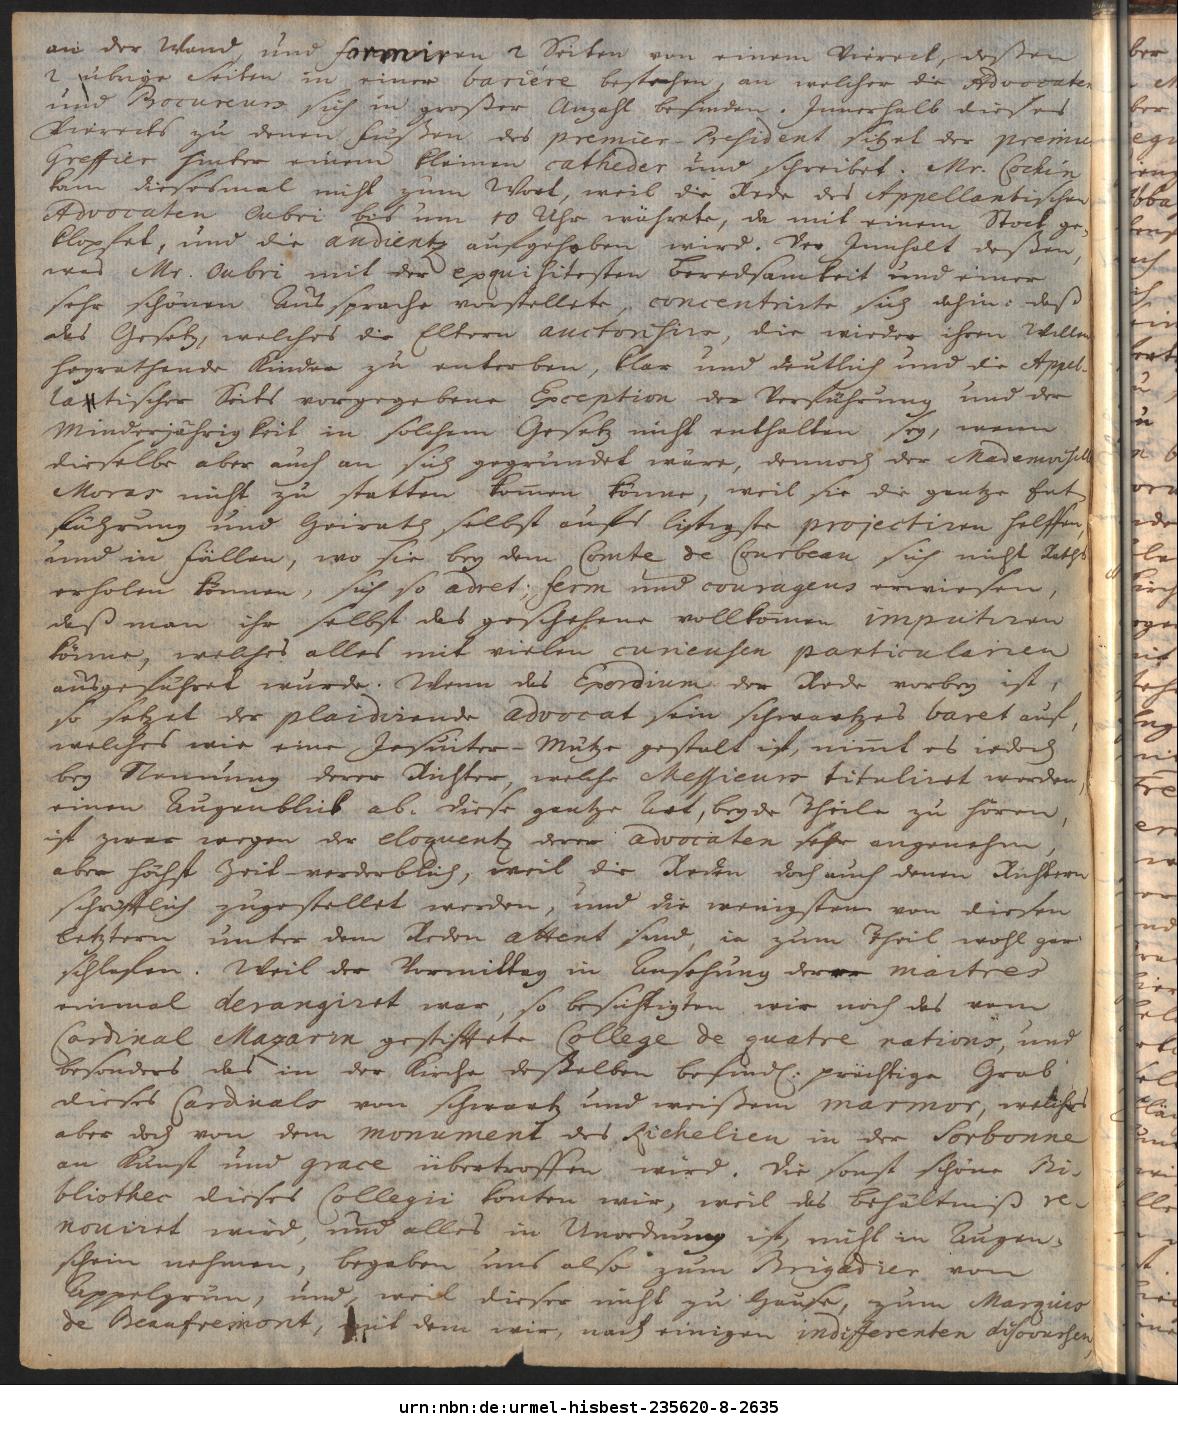 an der Wand, und formiren 2 Seiten von einem Viereck, deßen
2 übrige Seiten in einer bariére bestehen, an welcher die Advocaten
und Procureurs sich in großer Anzahl befinden. Innerhalb dieses
Vierecks zu denen Fußen des premier-President sitzet der premier
Greffier hinter einem kleinen catheder und schreibet. Mr. Cochin
kam diesesmal nicht zum Wort, weil die Rede des Appellantischen
Advocaten Aubri bis um 10 Uhr währete, da mit einem Stock ge-
klopfet, und die audientz aufgehoben wird. Der Innhalt deßen,
was Mr. Aubri mit der exquisitesten Beredsamkeit und einer
sehr schönen Aussprache vorstellete, concentrirte sich dahin: daß
das Gesetz, welches die Eltern authorisire, die wieder ihren Willen
heyrathende Kinder zu enterben, klar und deutlich und die Appel-
lantischer Seits vorgegebene Exception der Verführung und der
Minderjährigkeit in solchem Gesetz nicht enthalten sey, wenn
dieselbe aber auch an sich gegründet wäre, dennoch der Mademoiselle
Moras nicht zu statten kom̄en könne, weil sie die gantze Ent-
führung und Heirath selbst aufs listigste projectiren helffen,
und in Fällen, wo sie bey dem Comte de Courbeau sich nicht Raths
erholen können, sich so adret, ferm und couragens erwiesen,
daß man ihr selbst das geschehene vollkom̄en imputiren
könne, welches alles mit vielen curieusen particularien
ausgeführet wurde. Wenn das Exordium der Rede vorbey ist,
so setzet der plaidirende Advocat sein schwartzes baret auf,
welches wie eine Jesuiter-Mütze gestalt ist, nim̄t es iedoch
bey Nennung derer Richter, welche Messieurs tituliret werden,
einen Augenblick ab. Diese gantze Art, beyde Theile zu hören,
ist zwar wegen der eloquentz derer advocaten sehr angenehm,
aber höchst Zeit-verderblich, weil die Reden doch auch denen Richtern
schrifftlich zugestellet werden, und die wenigsten von diesen
letztern unter dem Reden attent sind, ia zum Theil wohl gar
schlafen. Weil der Vormittag in Ansehung derer maitres
einmal derangiret war, so besichtigten wir noch das vom
Cardinal Mazarin gestifftete College de quatre nations, und
besonders das in der Kirche deßelben befindl: prächtige Grab
dieses Cardinals von schwartz und weißem marmor, welches
aber doch von dem monument des Richelieu in der Sorbonne
an Kunst und grace übertroffen wird. Die sonst schöne Bi-
bliothec dieses Collegii konten wir, weil das Behältniß re-
noviret wird, und alles in Unordnung ist, nicht in Augen-
schein nehmen, begaben uns also zum Brigadier von
Appelgrün, und, weil dieser nicht zu Hause, zum Marquis
de Beaufremont, mit dem wir, nach einigen indifferenten discoursen,
urn:nbn:de:urmel-hisbest-235620-8-2635